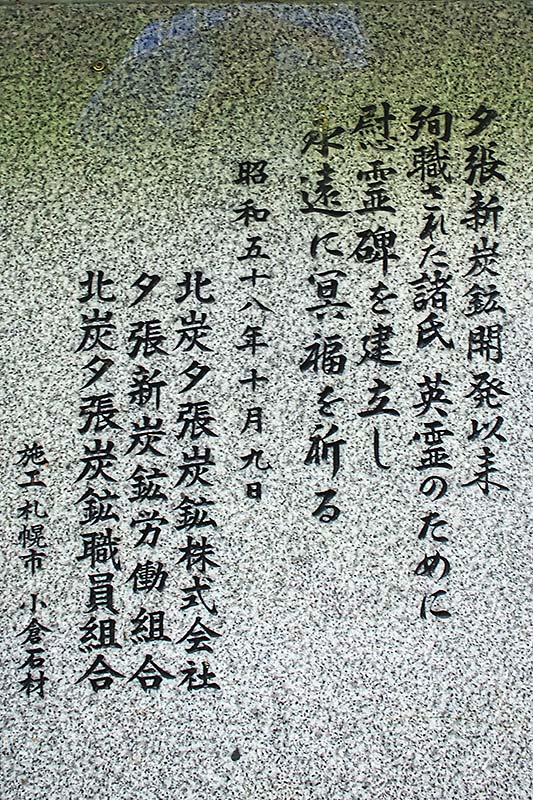 夕張新炭鉱開発以来
殉職された諸氏 英霊のために
慰霊碑を建立し
永遠に冥福を祈る
昭和五十八年十月九日
北炭夕張炭鉱株式会社
夕張新炭鉱労働組合
北炭夕張炭鉱職員組合
施工 札幌市 小倉石材